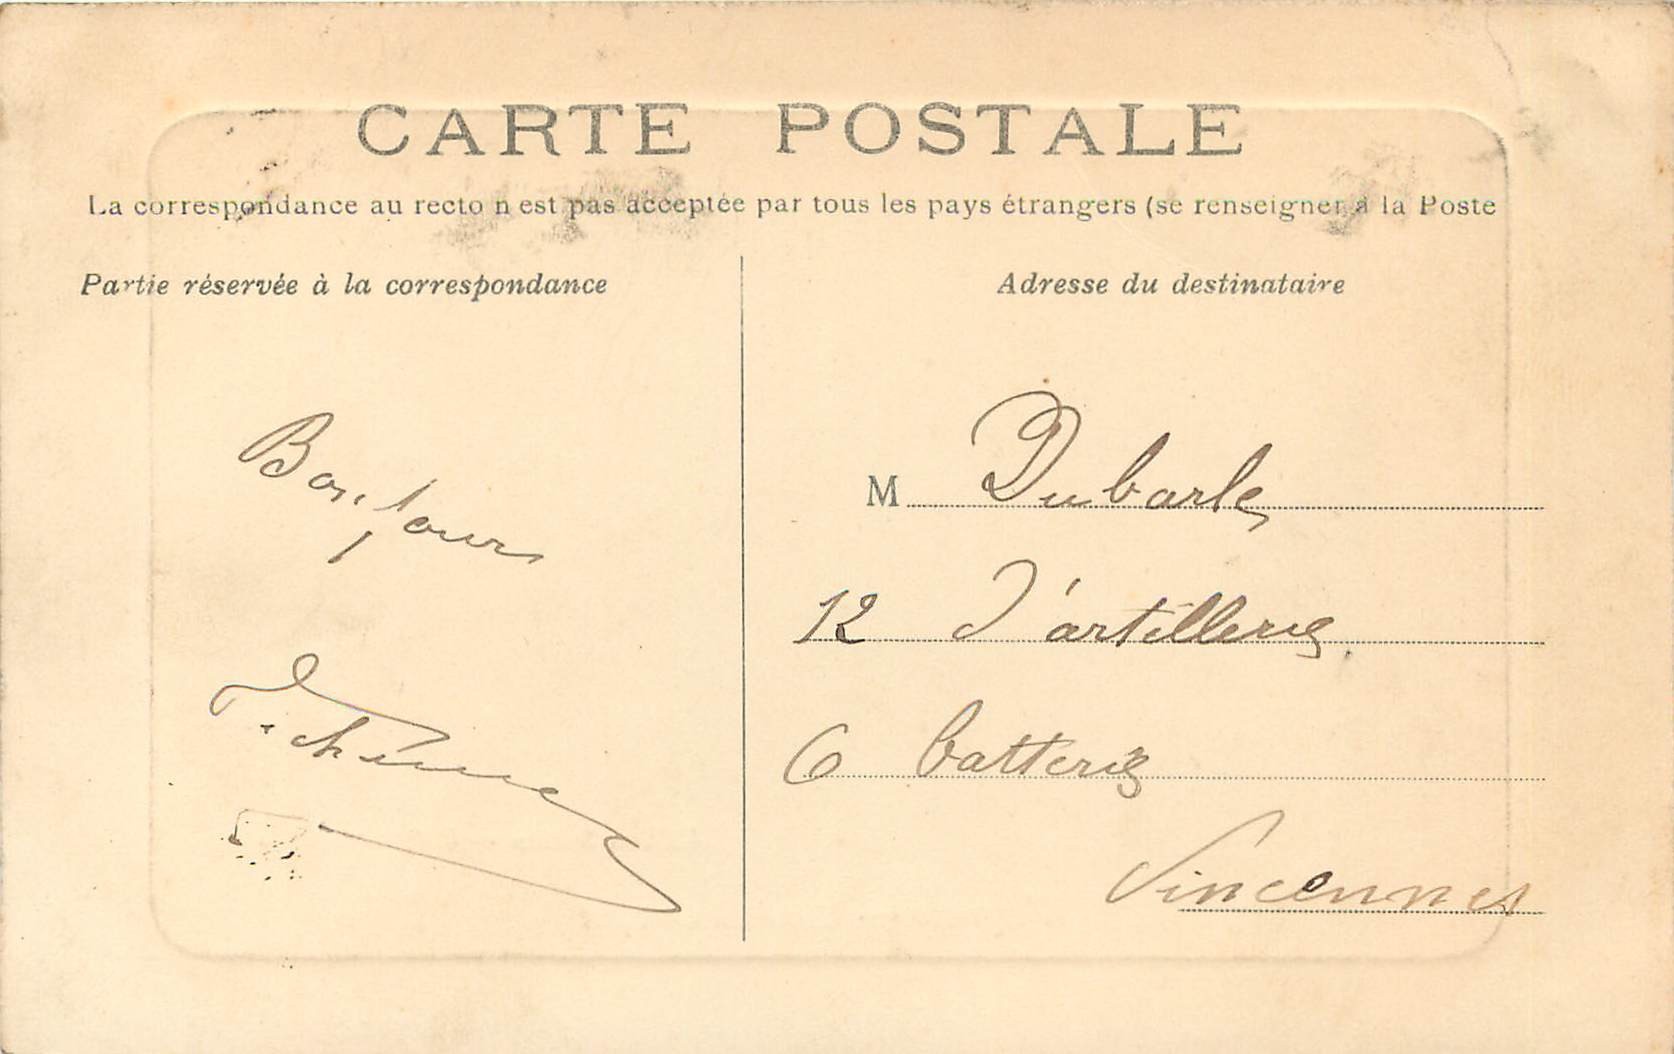 CARTE POSTALE
La correspondance au recto n est pas acceptée par tous les pays étrangers (se renseigner à la Poste
Partie réservée à la correspondance
Bonjour
Adresse du destinataire
M Dubarle
12 d'artillerie
6 batterie
Vincennes